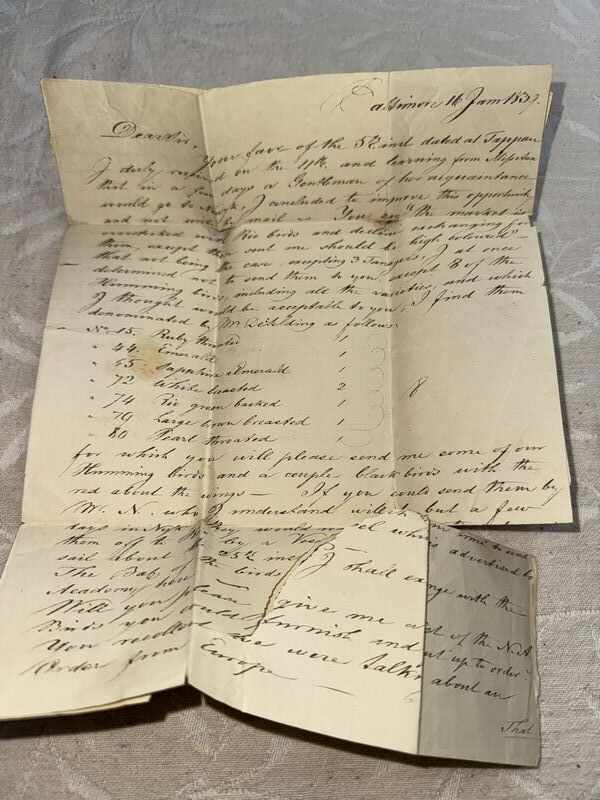 Baltimore 16 Jany 1837.
Dear Sir,
Your fave of the 5th inst dated at Tappan
I duly received on the 11th, and learning from
that in a few days a Gentleman of her acquaintance
would go to NYork, I concluded to improve this opportunity
and not write by mail – You say "the market is
overstocked with Rio birds and decline exchanging for
them, except those sent me should be high coloured" –
that not being the case, excepting 3 Tanagers, I at once
determined not to send them to you except 8 of the
Humming birds, including all the varieties, and which
I thought would be acceptable to you; I find them
denominated by Mr as follows
No 15. Ruby throated 1
" 44. Emerald 1
" 45 Sapphire & Emerald 1
" 72 White breasted 2 8
" 74 Rio green backed 1
" 79 Large brown breasted 1
" 80 Pearl throated 1
for which you will please send me some of our
Humming birds and a couple black birds with the
red about the wings – If you could send them by
W. N. who I understand will be but a few
days in NYork they would
them off to by a Vessel which is advertised to
sail about the 25th inst I shall exchange with the
Academy here the birds
Will you please give me a list of the N. A.
Birds you could furnish and put up to order
You recollect we were talking about an
Order from Europe –
That